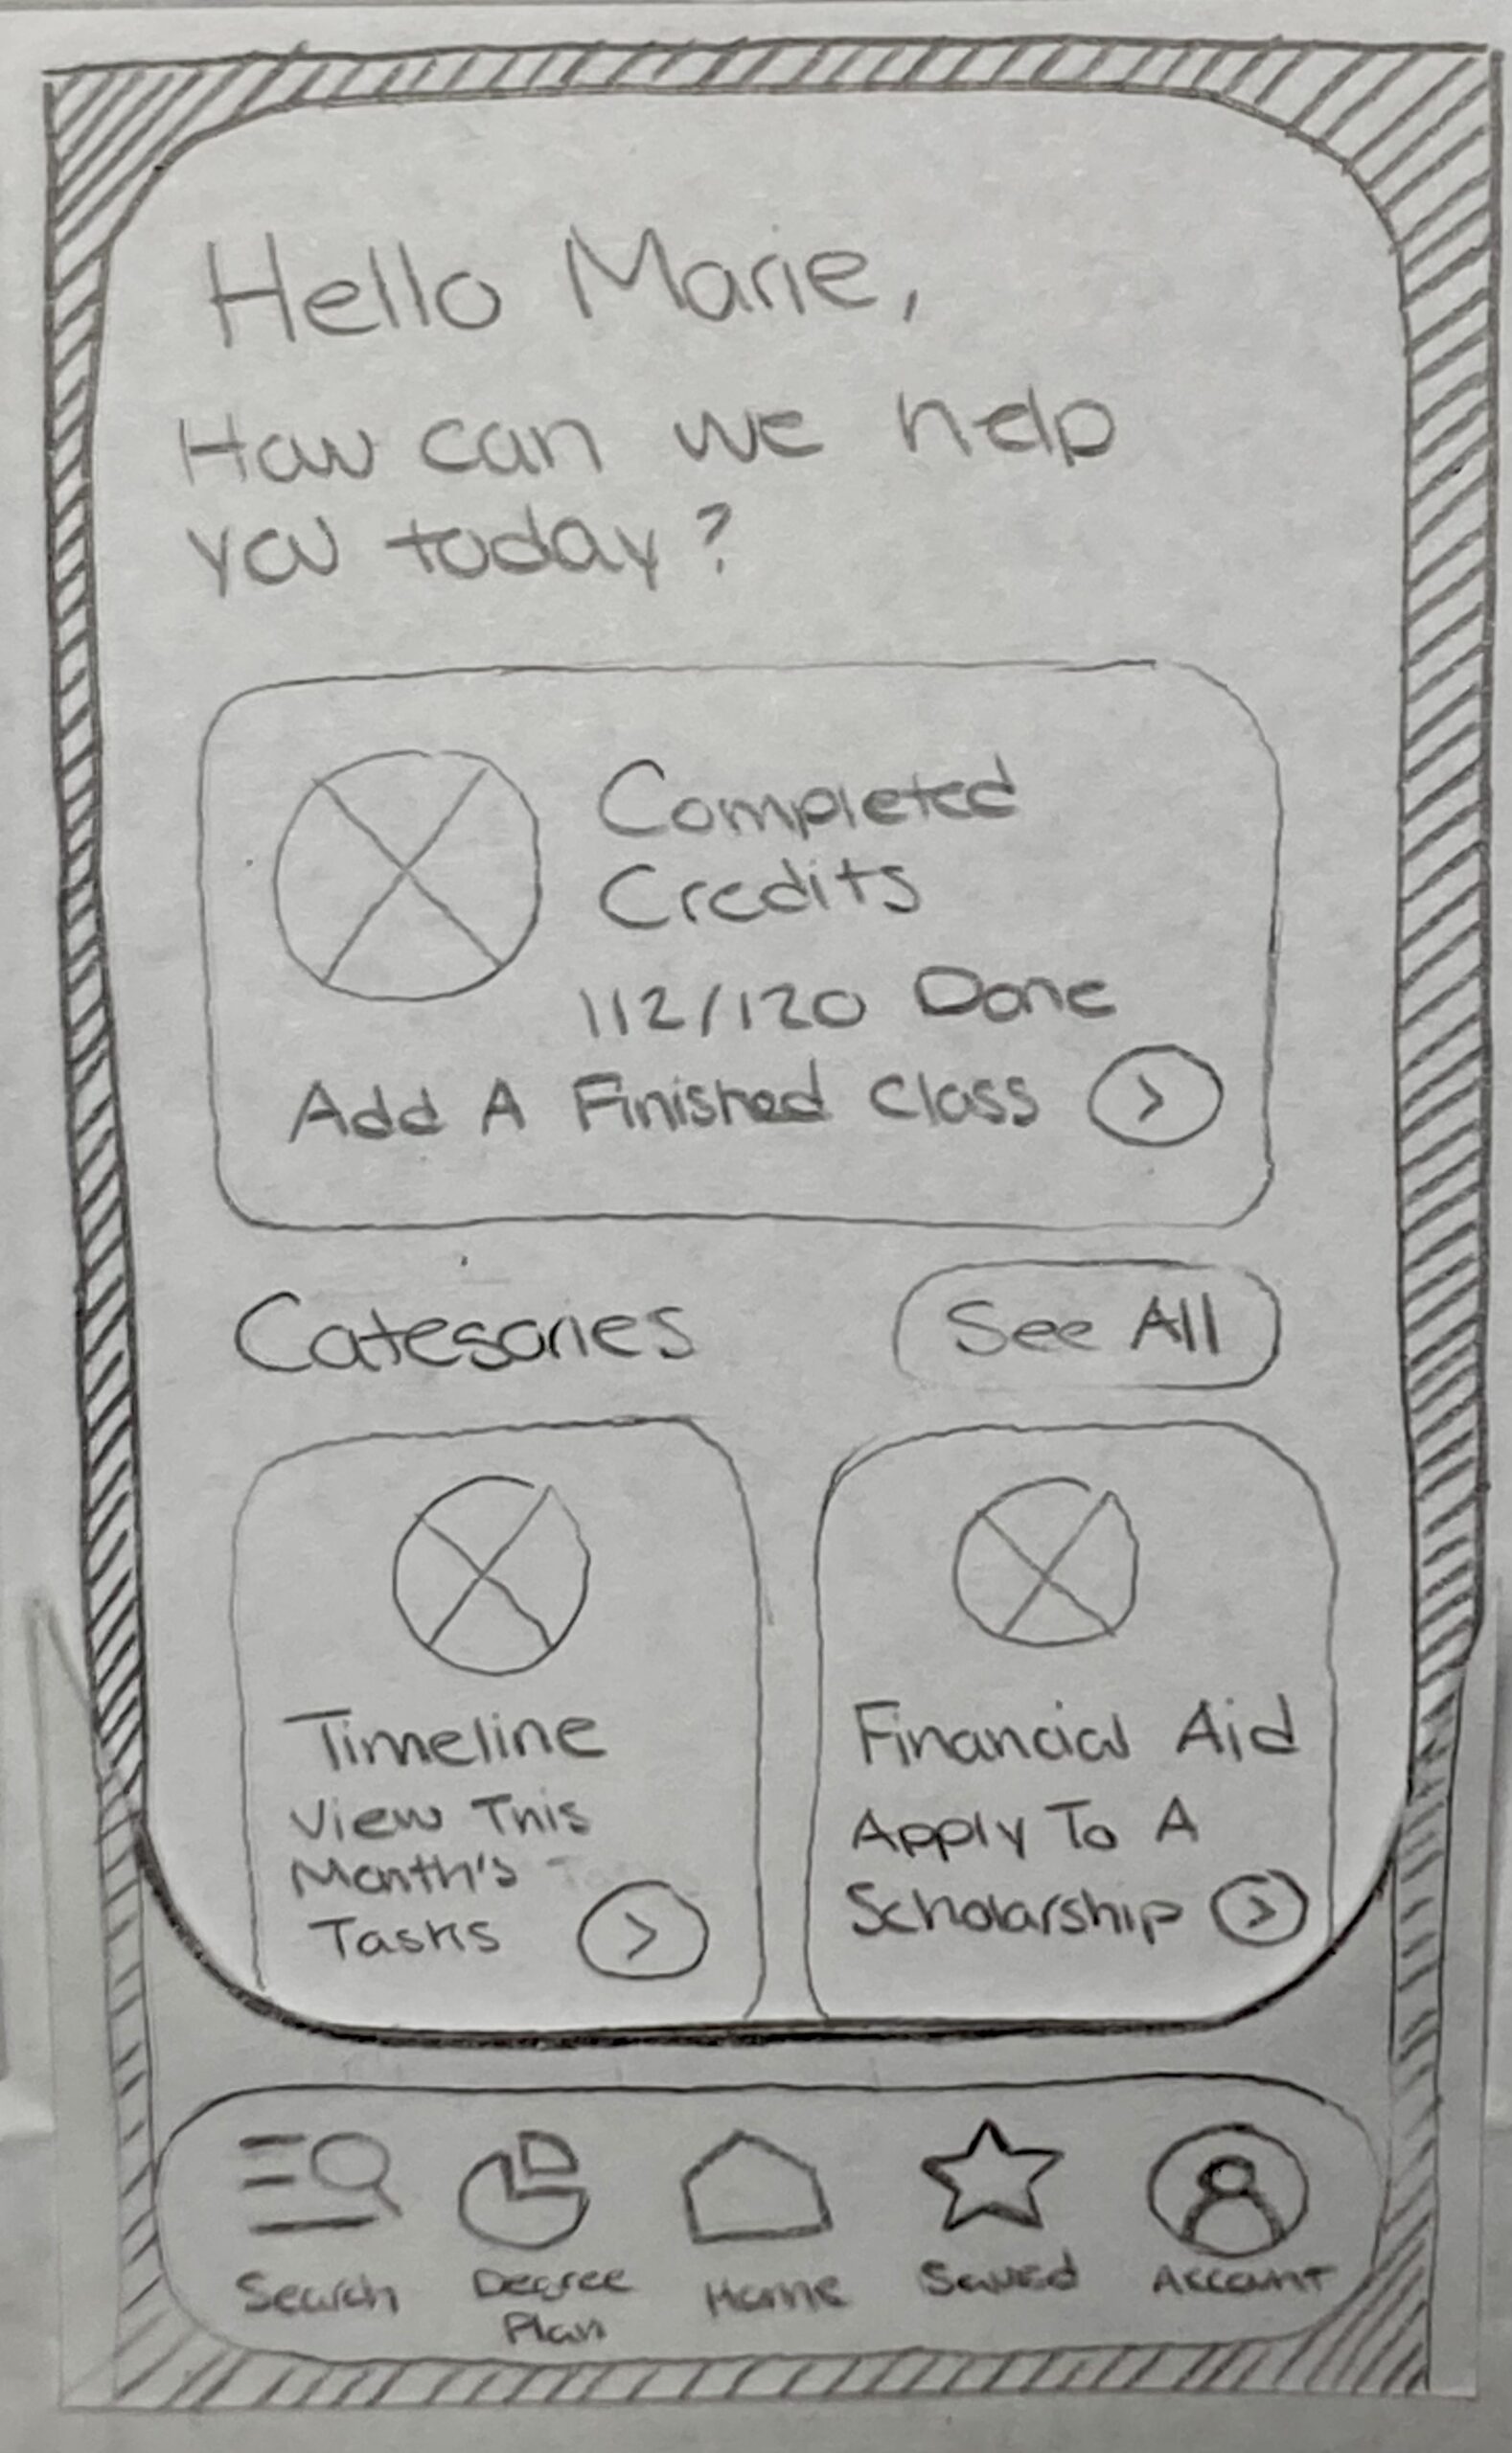 Hello Marie,
How can we help
you today?
Completed
Credits
112/120 Done
Add A Finished Class >
Categories
See All
Timeline
View This
Month's
Tasks >
Financial Aid
Apply To A
Scholarship >
Search
Degree
Plan
Home
Saved
Account